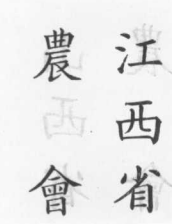 江西省
農會